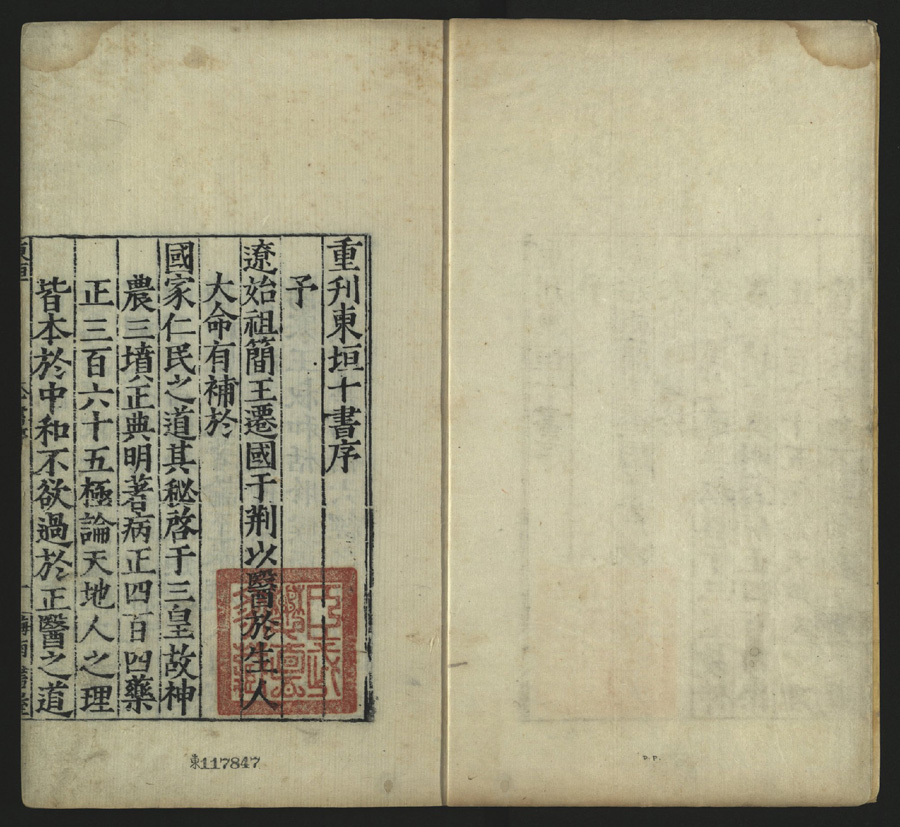 重刋東垣十書序
予
遼始祖簡王遷國于荆以醫於生人
大命有補於
國家仁民之道其秘啓于三皇故神
農三墳正典明著病正四百四藥
正三百六十五極論天地人之理
皆本於中和不欲過於正醫之道
東垣
梅南書屋
東117847